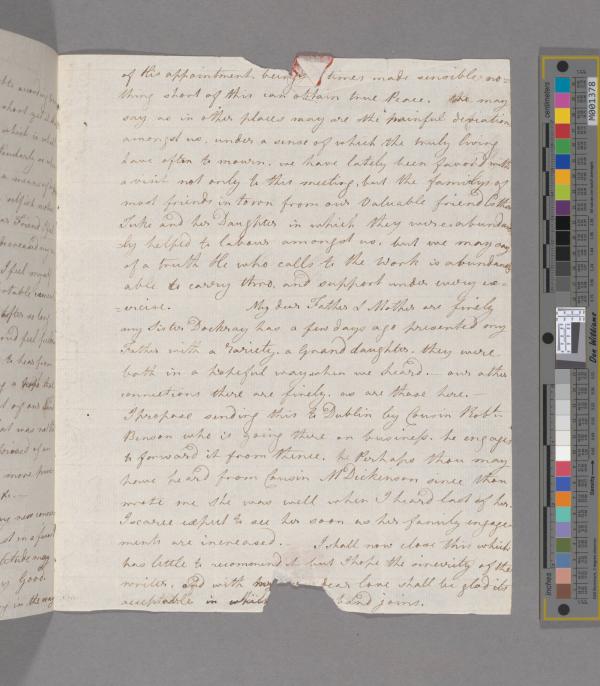 of his appointment, being times made sensible no=
thing short of this can obtain true Peace. We may
say as in other places may are the painful deviation
amongst us, under a sense of which the truly living
have often to mourn. we have lately been favor'd with
a visit not only to this meeting, but the familys of
most friends in town from our Valuable friend Esther
Tuke and her Daughter in which they were abundan
tly helped to labour amongst us, but we may say
of a truth He who calls to the work is abundantly
able to carry thro, and support under every ex=
=ercise. My dear Father & Mother are finely
my Sister Dockray has a few days ago presented my
Father with a Variety, a Grand daughter, they were
both in a hopeful way when we heard. — our other
connections there are finely, as are those here. —
I propose sending this to Dublin by Cousin Robt.
Benson who is going there on business, he engages
to forward it from thence. Perhaps thou may
have heard from Cousin M Dickenson since thou
wrote me she was well when I heard last of her.
I scarce expect to see her soon as her family engage
ments are increased. — I shall now close this which
has little to recommend it but I hope the sincerity of the
writer, and with dear love shall be glad its
acceptable in which band joins.
centimeters
inches
M001378
Don Williams